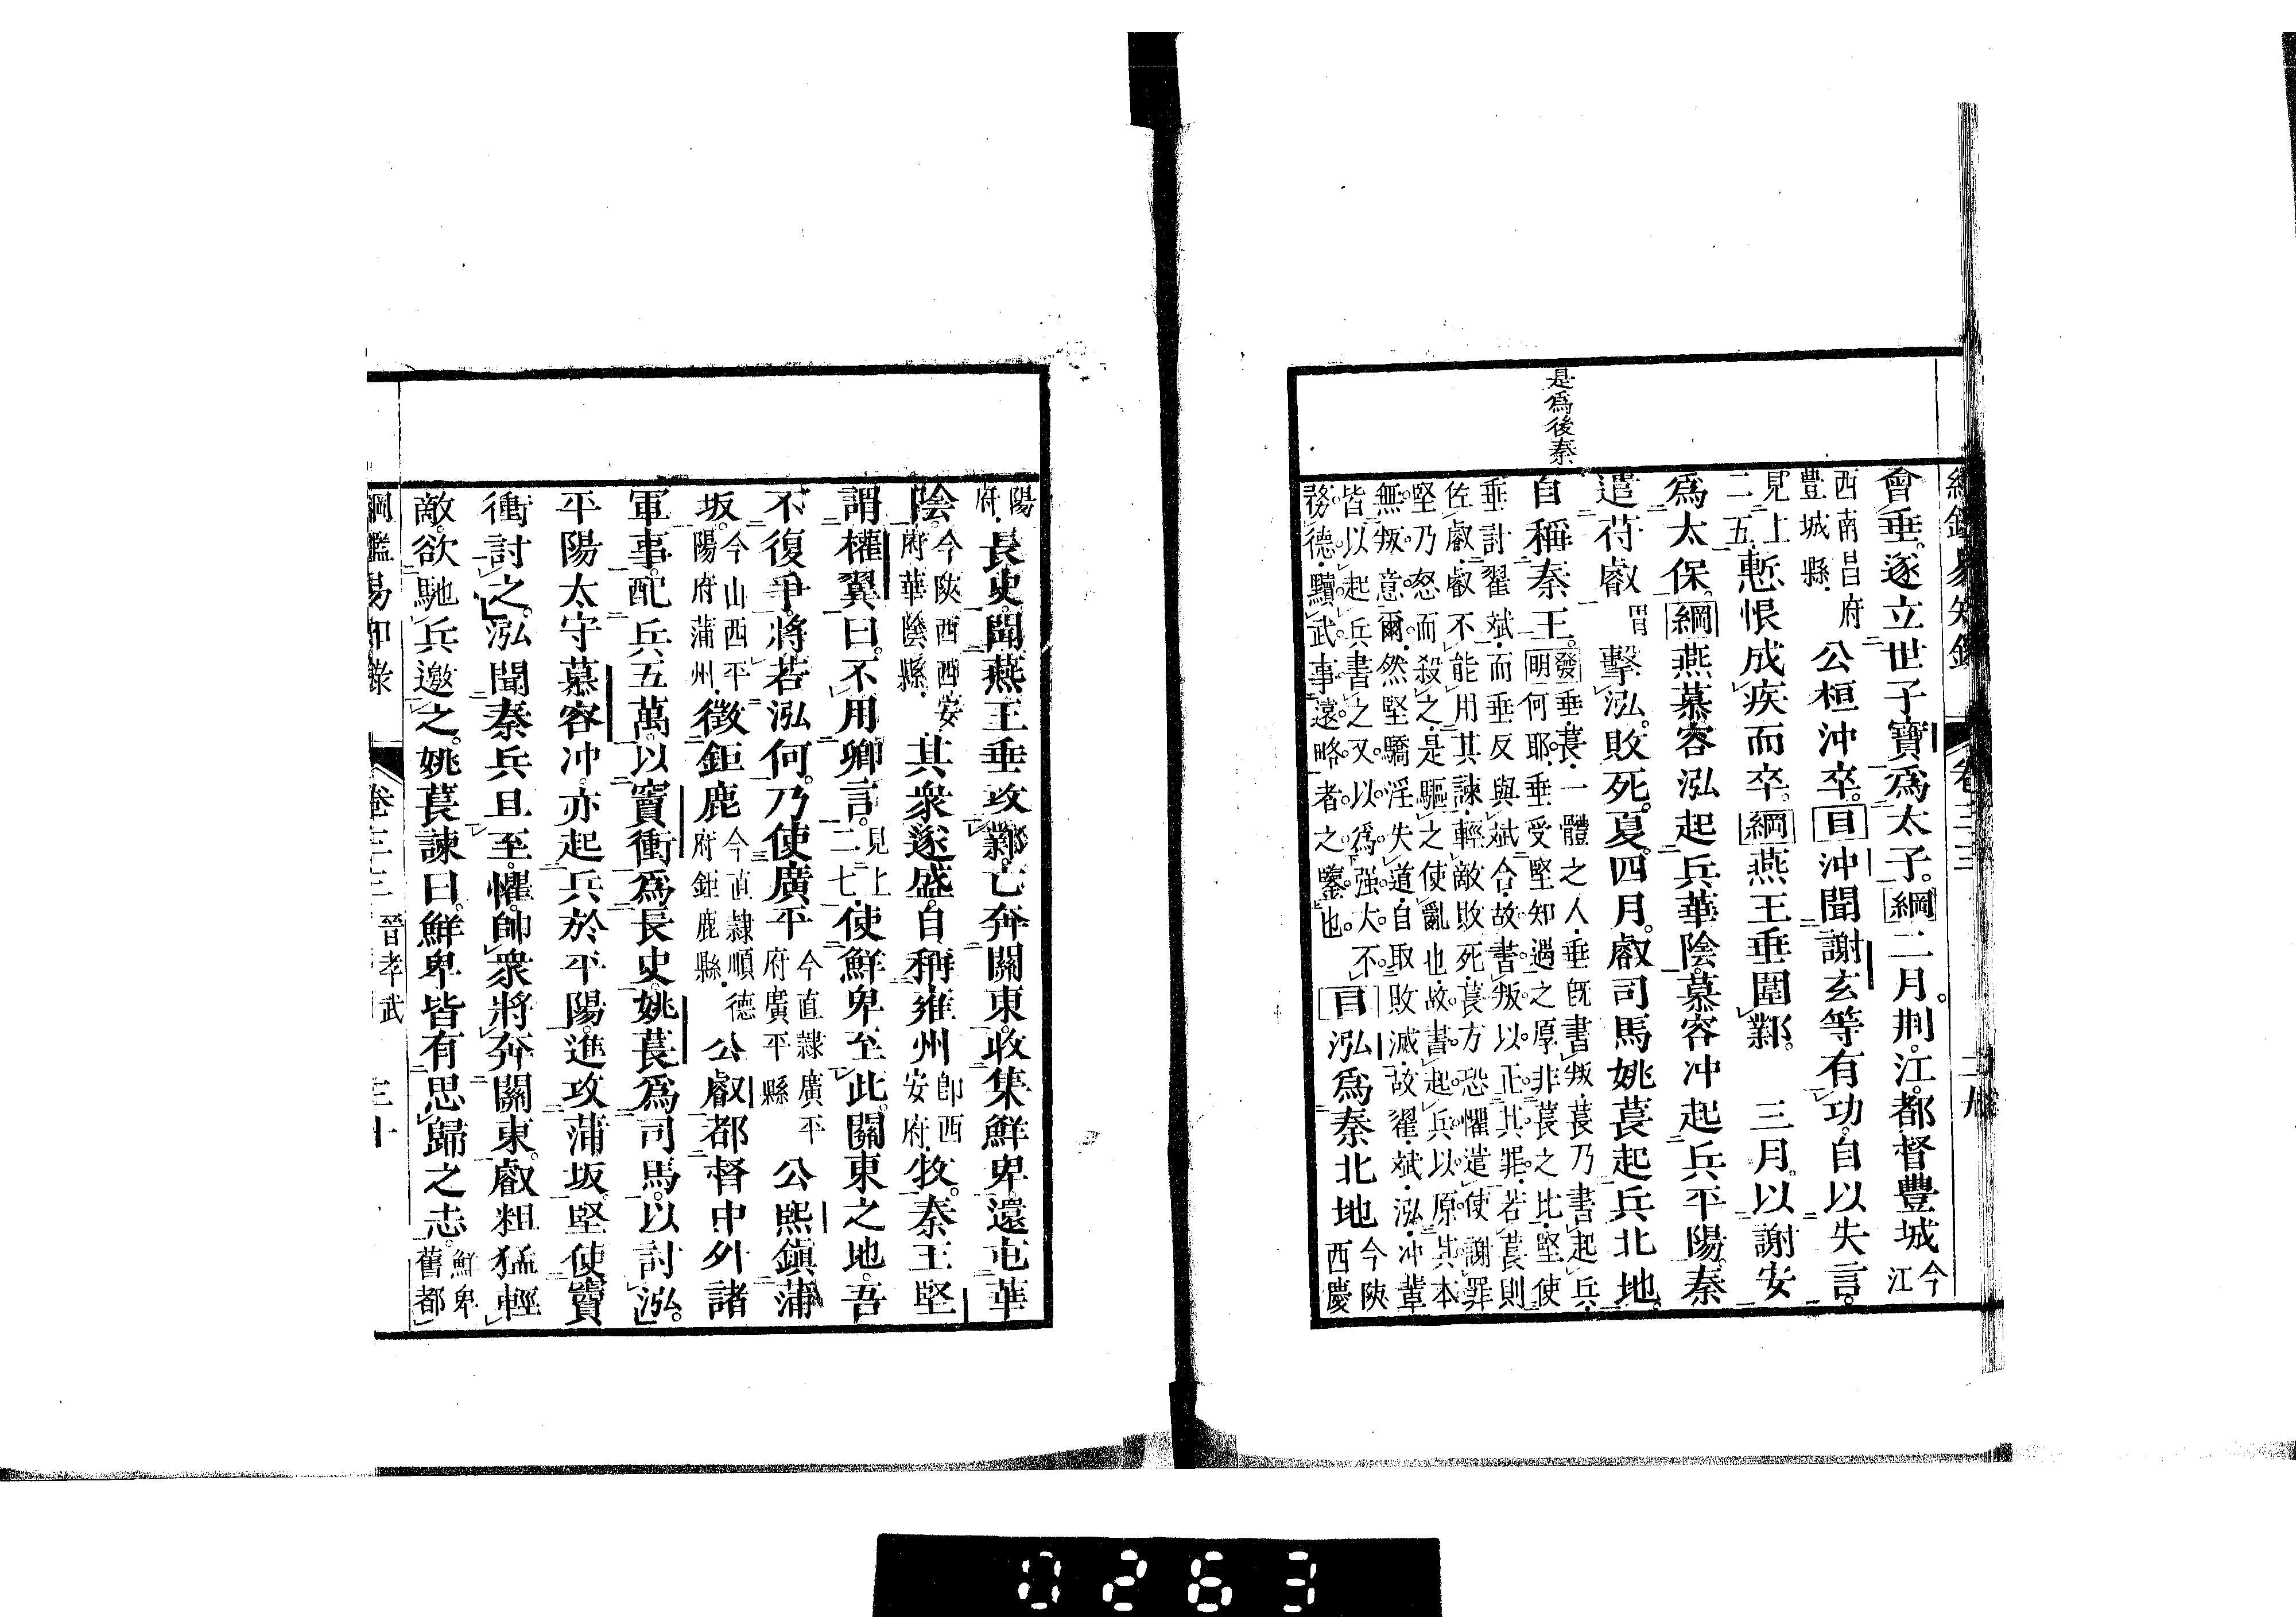 綱鑑易知錄 卷三三 二九
是爲後秦
會垂遂立世子寶爲太子。綱二月。荆江都督豐城今江
西南昌府豐城縣公桓沖卒。目沖聞謝玄等有功。自以失言。
見上二五慙恨成疾而卒。綱燕王垂圍鄴。 三月。以謝安
爲太保。綱燕慕容泓起兵華陰。慕容冲起兵平陽。秦
遣苻叡胃擊泓。敗死。夏。四月。叡司馬姚萇起兵北地。
自稱秦王。發明垂萇一體之人垂旣書叛萇乃書起兵何耶垂受堅知遇之厚非萇之比堅使
垂討翟斌而垂反與斌合故書叛以正其罪若萇則佐叡叡不能用其諫輕敵敗死萇方恐懼遣使謝罪
堅乃怒而殺之是驅之使亂也故書起兵以原其本無叛意爾然堅驕淫失道自取敗滅故翟斌泓冲輩
皆以起兵書之又以爲强大不務德黷武事遠略者之鑒也。目泓爲秦北地今陝西慶
陽府長史。聞燕王垂攻鄴。亡奔關東。收集鮮卑。還屯華
陰。今陝西西安府華陰縣其衆遂盛。自稱雍州卽西安府牧。秦王堅
謂權翼曰。不用卿言。見上二七使鮮卑至此。關東之地。吾
不復爭。將若泓何。乃使廣平今直隸廣平府廣平縣公熙鎮蒲
坂。今山西平陽府蒲州徵鉅鹿今直隸順德府鉅鹿縣公叡都督中外諸
軍事。配兵五萬。以竇衝爲長史。姚萇爲司馬。以討泓。
平陽太守慕容冲。亦起兵於平陽。進攻蒲坂。堅使竇
衝討之。泓聞秦兵且至。懼。帥衆將奔關東。叡粗猛輕
敵。欲馳兵邀之。姚萇諫曰。鮮卑皆有思歸之志。鮮卑舊都
綱鑑易知錄 卷三三 晉孝武 三十
0263